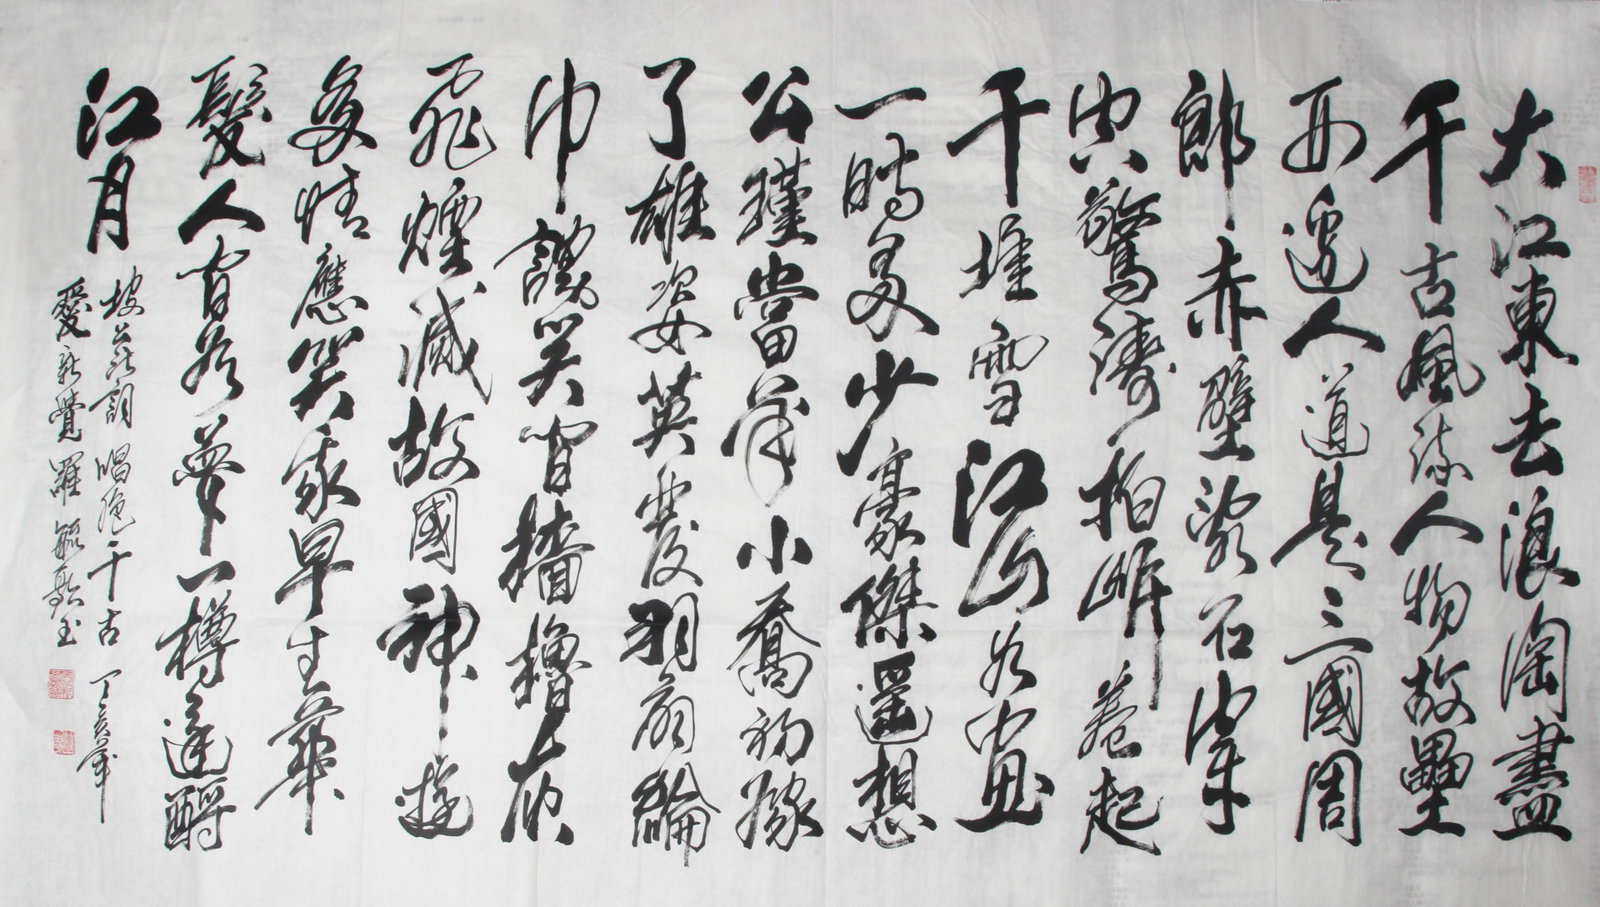 大江東去浪淘盡
千古風流人物故壘
西邊人道是三國周
郎赤壁亂石穿
空驚濤拍岸卷起
千堆雪江山如畫
一時多少豪傑遥想
公瑾當年小喬初嫁
了雄姿英發羽扇綸
巾談笑間檣櫓灰
飛煙滅故國神遊
多情應笑我早生華
髮人間如夢一樽還酹
江月
坡公此詞唱絶千古 丁亥年
愛新覺羅毓